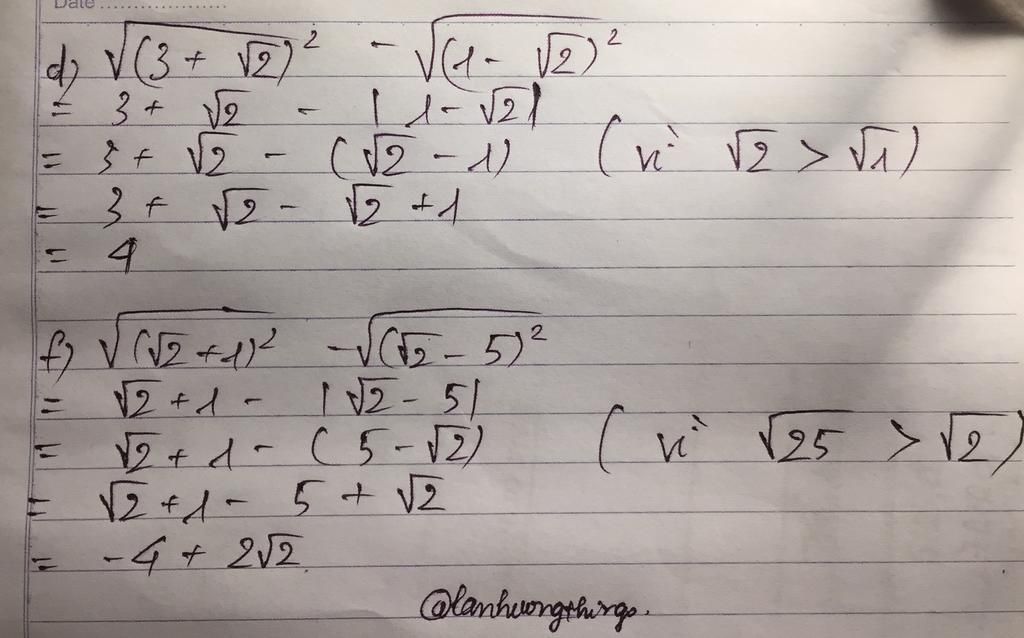 Date
d) √(3 + √2)² - √(1 - √2)²
= 3 + √2 - |1 - √2|
= 3 + √2 - (√2 - 1) (vì √2 > √1)
= 3 + √2 - √2 + 1
= 4
f) √(√2 + 1)² - √(√2 - 5)²
= √2 + 1 - |√2 - 5|
= √2 + 1 - (5 - √2) (vì √25 > √2)
= √2 + 1 - 5 + √2
= -4 + 2√2
@lanhuongthings.